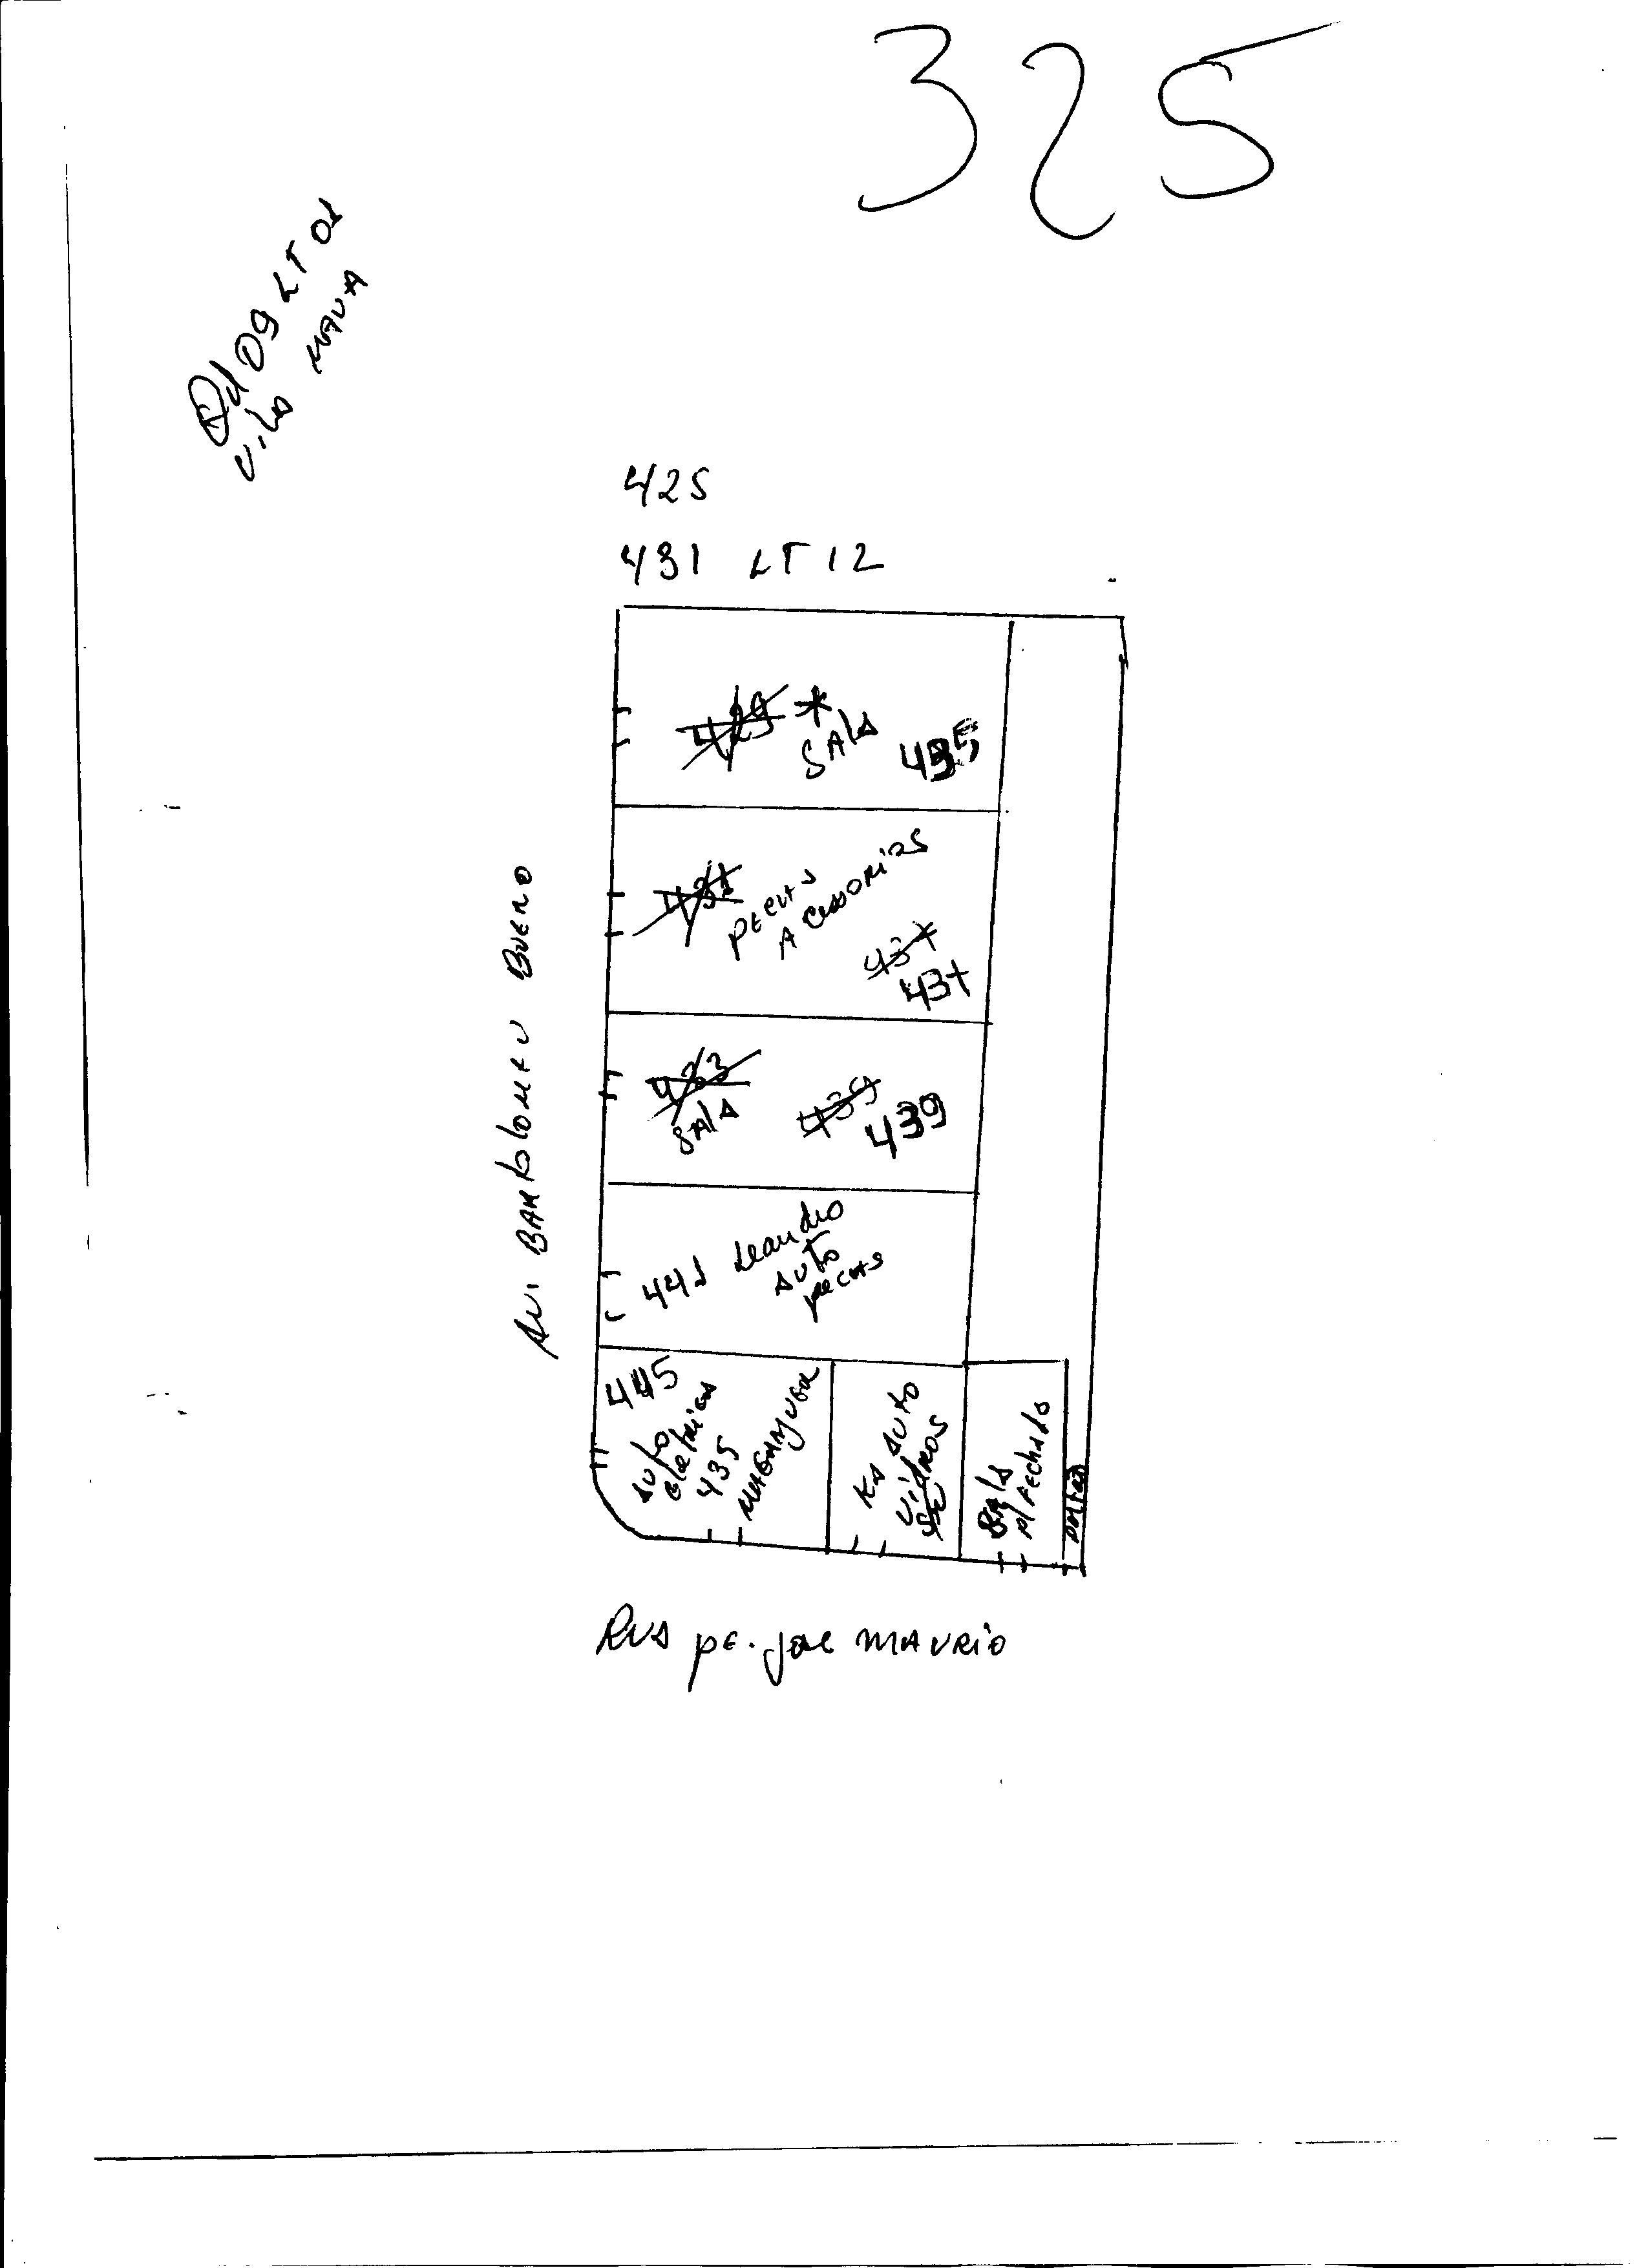 325
Qd 09 LT 01
Vila MAUA
425
431 LT 12
429 *
SALA
435
431
PECAS
ACESSORIOS
437
437
433
SALA
439
439
441 Leandro
AUTO
PECAS
445
AUTO
eletricas
435
KS AUTO
VidROS
SALA
P/ Fechado
PORTAO
AV. BARTOLOMEU BUENO
RUA PE. José MAURIO